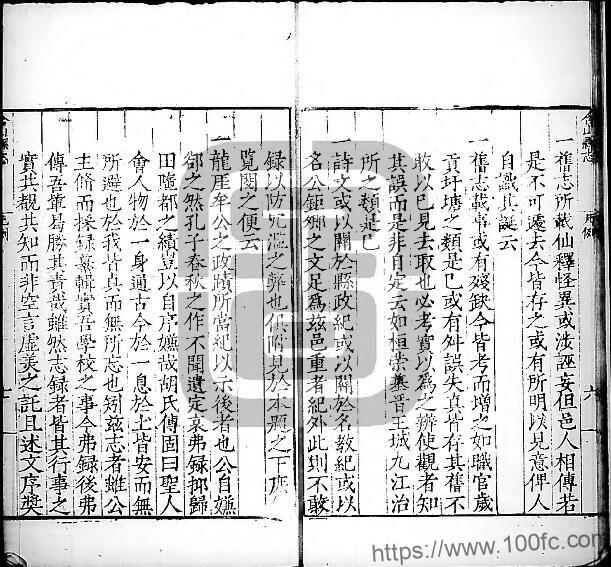 一舊志所載仙釋怪異或涉誣妄但邑人相傳若
是不可遽去今皆存之或有所明以見意俾人
自識其誕云
一舊志載事或有殘缺今皆考而增之如職官歲
貢圩塘之類是已或有舛誤失真皆存其舊不
敢以己見去取也必考實以為之辨使觀者知
其誤而是非自定云如桓榮墓晋王城九江治
所之類是已
一詩文或以關於縣政紀或以關於名教紀或以
名公鉅卿之文足為兹邑重者紀外此則不敢
錄以防冗濫之弊也俱附見於本題之下庶人
覧閱之便云
一龍厓牟公之政蹟所當紀以示後者也公自嫌
郤之然孔子春秋之作不聞遺定哀弗録郓歸
田隳都之績豈以自序嫌哉胡氏傳固曰聖人
會人物於一身通古今於一息於土皆安而無
所避也於我皆真而無所忘也矧兹志者雖公
主脩而採録纂輯實吾學校之事今弗録後弗
傳吾輩曷勝其責哉雖然志録者皆其行事之
實共覩共知而非空言虚美之託且述文序獎
含山縣志
序例
六
七
https://www.100fc.com